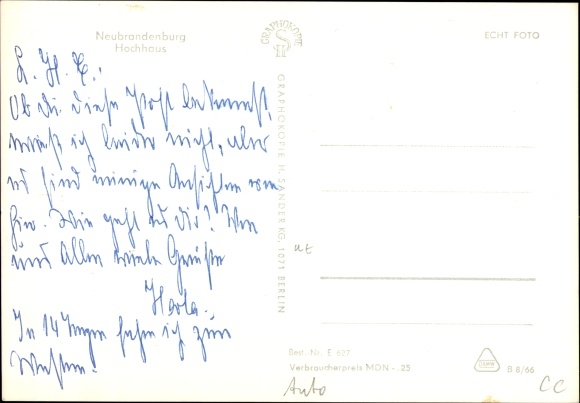 Neubrandenburg
Hochhaus
GRAPHOKOPIE
H S
ECHT FOTO
L. H. E.!
Ob Du diese Post bekommst,
weiß ich leider nicht, aber
es sind einige Ansichten von
hier. Wie geht es Dir? Von
uns Allen viele Grüße
Herta.
In 14 Tagen fahre ich zum
GRAPHOKOPIE H. SANDLER KG, 1071 BERLIN
Best. Nr. E 627
Verbraucherpreis MDN -.25
B 8/66
Auto
CC